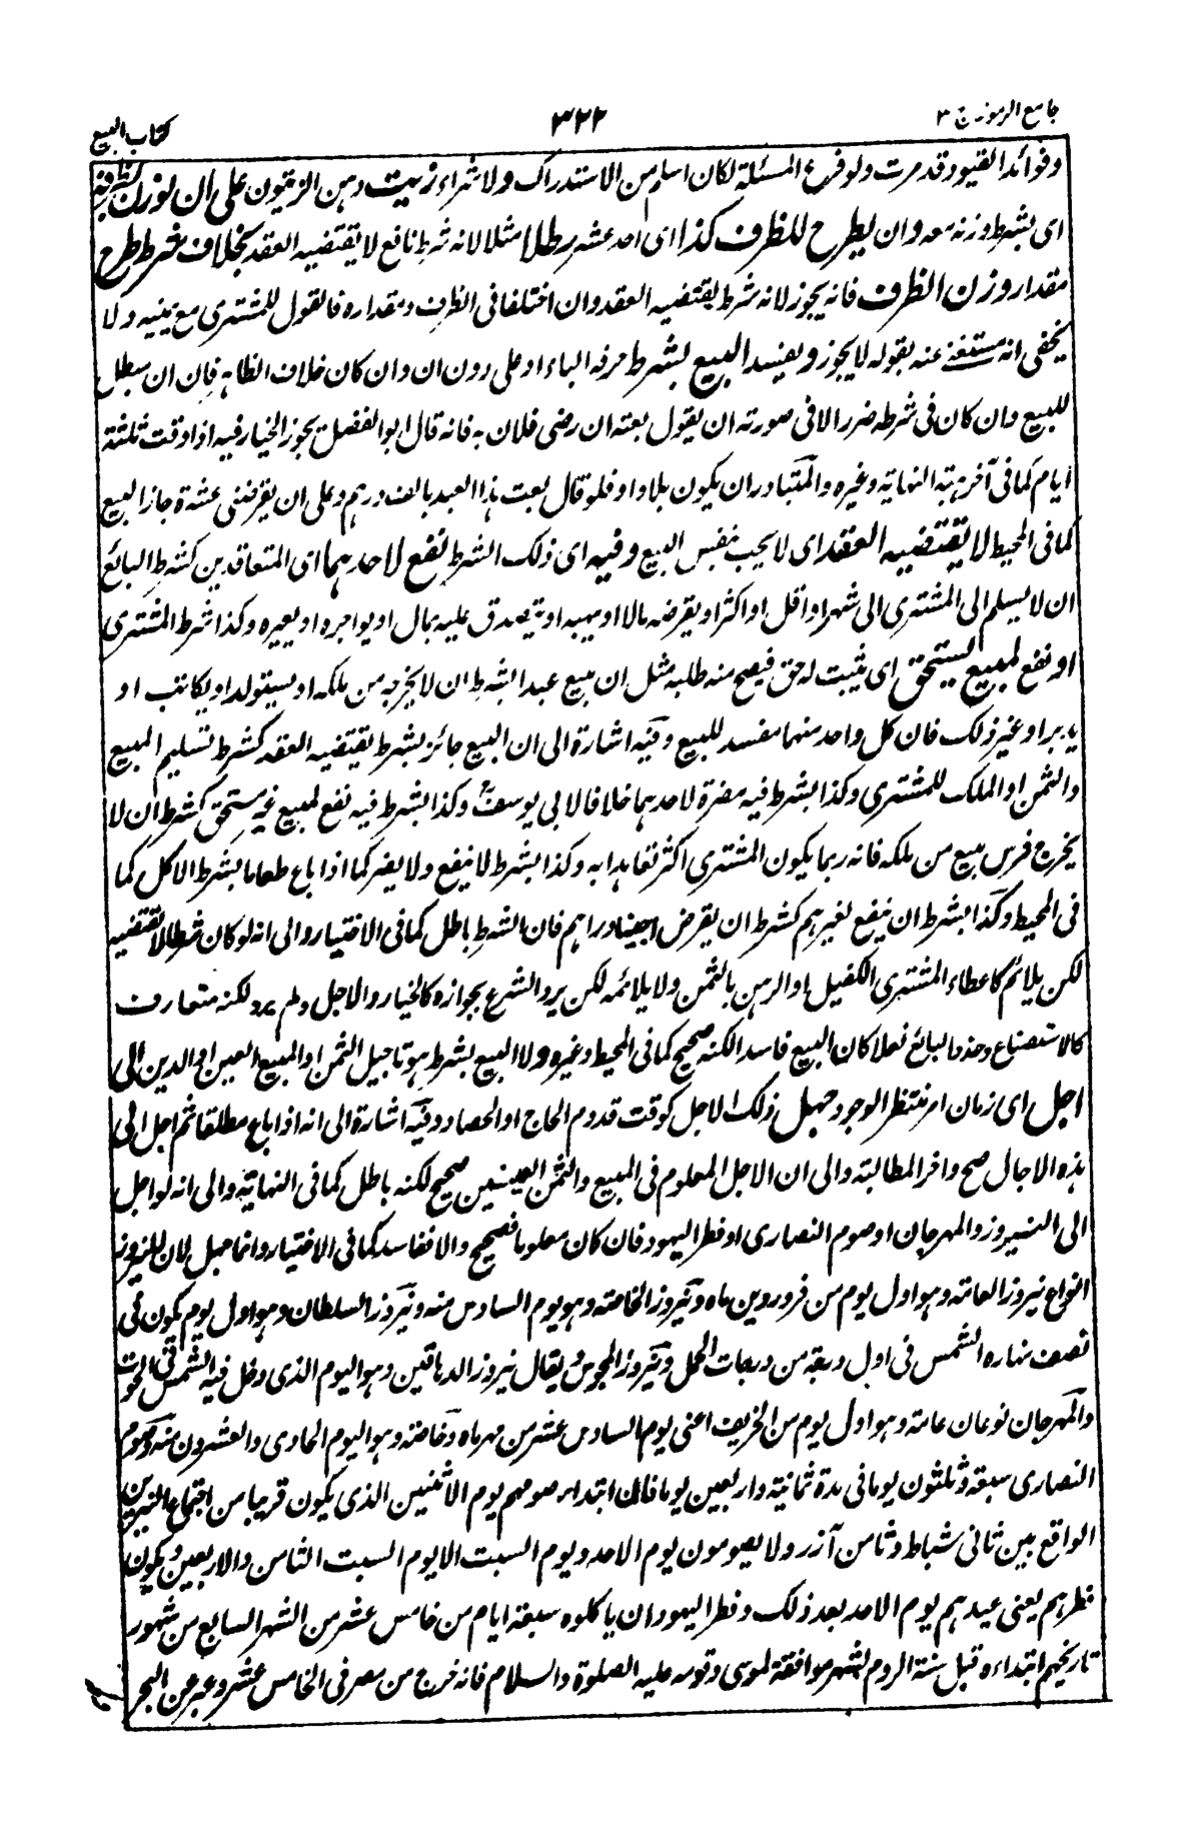 جامع الرموز ج ٣
٣٢٢
كتاب البيع
وفوائد القيود قد مرت ولو فرع المسئلة لكان اسلم من الاستدراك ولا شراء زيت دهن الزيتون على ان يوزن بظرفه
اى بشرط وزنه معه وان يطرح للظرف كذا اى احد عشر رطلا مثلا لانه شرط نافع لا يقتضيه العقد بخلاف شرط طرح
مقدار وزن الظرف فانه يجوز لانه شرط يقتضيه العقد وان اختلفا فى الظرف ومقداره فالقول للمشترى مع يمينه ولا
يخفى انه مستغن عنه بقوله لا يجوز ويفسد البيع بشرط حرفه الباء او على دون ان وان كان خلاف الظاهر فان ان مبطل
للبيع وان كان فى شرطه ضرر الا فى صورته ان يقول بعته ان رضى فلان به فانه قال ابو الفضل يجوز الخيار فيه اذا وقت ثلثة
ايام كما فى آخر بهة النهاية وغيره والمتبادر ان يكون بلا واو فلو قال بعت هذا العبد بالف درهم وعلى ان يقرضنى عشرة جاز البيع
كما فى المحيط لا يقتضيه العقد اى لا يجب بنفس البيع وفيه اى ذلك الشرط نفع لاحدهما اى المتعاقدين كشرط البائع
ان لا يسلم الى المشترى الى شهر او اقل او اكثر او يقرضه مالا او يهبه او يتصدق عليه بمال او يواجره او يعيره وكذا شرط المشترى
او نفع لمبيع يستحق اى يثبت له حق فيصح منه طلبه مثل ان يبيع عبدا بشرط ان لا يخرجه من ملكه او يستولد او يكاتب او
يدبر او غير ذلك فان كل واحد منهما مفسد للبيع وفيه اشارة الى ان البيع جائز بشرط يقتضيه العقد كشرط تسليم المبيع
والثمن او الملك للمشترى وكذا بشرط فيه مضرة لاحدهما خلافا لابى يوسف وكذا بشرط فيه نفع لمبيع غير مستحق كشرط ان لا
يخرج فرس بيع من ملكه فانه ربما يكون المشترى اكثر تعاهدا به وكذا بشرط لا ينفع ولا يضر كما اذا باع طعاما بشرط الاكل كما
فى المحيط وكذا بشرط ان ينفع لغيرهم كشرط ان يقرض اجنبيا دراهم فان الشرط باطل كما فى الاختيار والى انه لو كان شرطا لا يقتضيه
لكن يلائم كاعطاء المشترى الكفيل او الرهن بالثمن ولا يلائمه لكن يرد الشرع بجوازه كالخيار والاجل ولم يرد لكنه متعارف
كالاستصناع وحذو البائع نعلا كان البيع فاسدا لكنه صحيح كما فى المحيط وغيره ولا البيع بشرط هو تاجيل الثمن او المبيع العين او الدين الى
اجل اى زمان امر منتظر الوجود جهل ذلك الاجل كوقت قدوم الحاج او الحصاد وفيه اشارة الى انه اذا باع مطلقا ثم اجل الى
هذه الاجال صح واخر المطالبة والى ان الاجل المعلوم فى المبيع والثمن العينين صحيح لكنه باطل كما فى النهاية والى انه لو اجل
الى النيروز والمهرجان او صوم النصارى او فطر اليهود فان كان معلوما فصحيح والا ففاسد كما فى الاختيار وانما جهل لان للنيروز
انواع نيروز العامة وهو اول يوم من فروردين ماه ونيروز الخاصة وهو يوم السادس منه ونيروز السلطان وهو اول يوم يكون فى
نصف نهاره الشمس فى اول درجة من درجات الحمل ونيروز المجوس ويقال نيروز الدهاقين وهو اليوم الذى دخل فيه الشمس فى الحوت
والمهرجان نوعان عامة وهو اول يوم من الخريف اعنى يوم السادس عشر من مهرماه وخاصة وهو اليوم الحادى والعشرون منه وصوم
النصارى سبعة وثلثون يوما فى مدة ثمانية واربعين يوما فان ابتداء صومهم يوم الاثنين الذى يكون قريبا من اجتماع النيرين
الواقع بين ثانى شباط وثامن آذر ولا يصومون يوم الاحد ويوم السبت الا يوم السبت الثامن والاربعين ويكون
فطرهم يعنى عيدهم يوم الاحد بعد ذلك وفطر اليهود ان ياكلوه سبعة ايام من خامس عشر من الشهر السابع من شهور
تاريخهم ابتداءه قبل سنة الروم لشهر موافقة لموسى وقومه عليه الصلوة والسلام فانه خرج من مصر فى الخامس عشر وعبر عن البحر